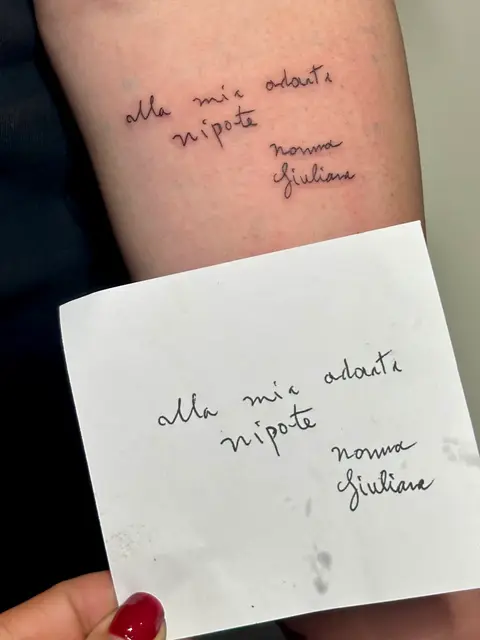 alla mia adorata
nipote
nonna
Giuliana
alla mia adorata
nipote
nonna
Giuliana